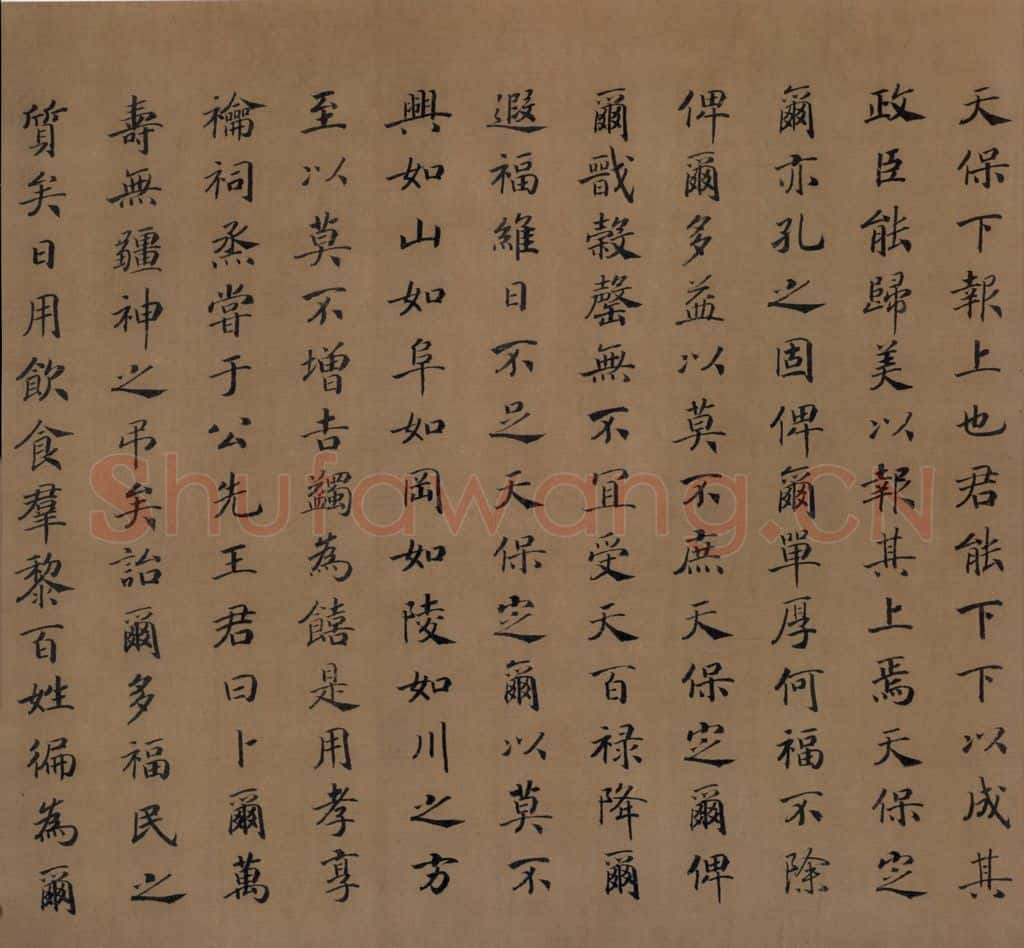 天保下報上也君能下下以成其
政臣能歸美以報其上焉天保定
爾亦孔之固俾爾單厚何福不除
俾爾多益以莫不庶天保定爾俾
爾戩穀罄無不宜受天百禄降爾
遐福維日不足天保定爾以莫不
興如山如阜如岡如陵如川之方
至以莫不增吉蠲為饎是用孝享
禴祠烝甞于公先王君曰卜爾萬
壽無疆神之弔矣詒爾多福民之
質矣日用飲食羣黎百姓徧為爾
Shufawang.CN